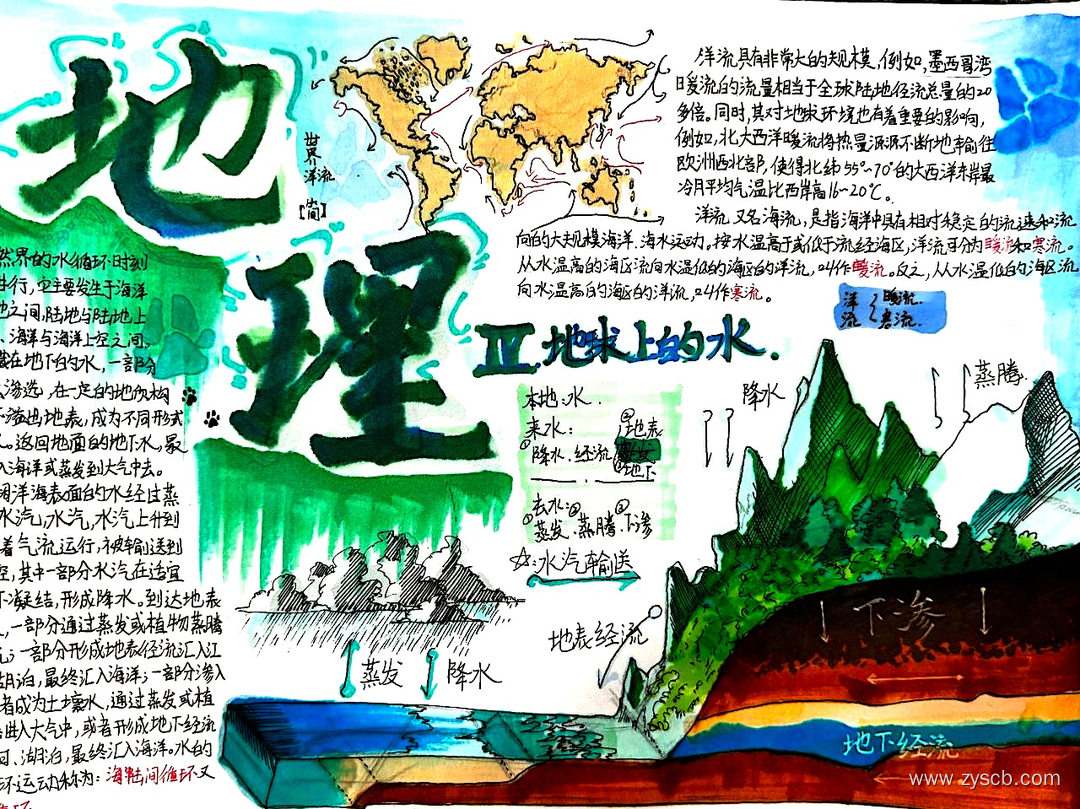 地
理
世界
洋流
[简]
洋流具有非常大的规模,例如,墨西哥湾
暖流的流量相当于全球陆地径流总量的20
多倍。同时,其对地球环境也有着重要的影响,
例如,北大西洋暖流将热量源源不断地输往
欧洲西北部,使得北纬55°~70°的大西洋东岸最
冷月平均气温比西岸高16~20℃。
洋流又名海流,是指海洋中具有相对稳定的流速和流
向的大规模海洋海水运动。按水温高于或低于流经海区,洋流可分为暖流和寒流。
从水温高的海区流向水温低的海区的洋流,叫作暖流。反之,从水温低的海区流
向水温高的海区的洋流,叫作寒流。
洋 暖流.
流 寒流.
IV.地球上的水.
然界的水循环时刻
进行,它主要发生于海洋
地之间,陆地与陆地上
、海洋与海洋上空之间,
藏在地下的水,一部分
在一定的地质构
溢出地表,成为不同形式
。返回地面的地下水,最
入海洋或蒸发到大气中去。
海洋表面的水经过蒸
水汽,水汽,水汽上升到
着气流运行,被输送到
空,其中一部分水汽在适宜
下凝结,形成降水。到达地表
,一部分通过蒸发或植物蒸腾
;一部分形成地表径流汇入江
湖泊,最终汇入海洋;一部分渗入
者成为土壤水,通过蒸发或植
进入大气中,或者形成地下经流
河、湖泊,最终汇入海洋。水的
环运动称为:海陆间循环又
本地:水.
来水:
①降水.经流 ①地表
②地下
去水:
①蒸发.蒸腾②下渗
☆:水汽输送
降水
蒸腾
地表经流
蒸发
降水
下渗
地下经流
www.zyscb.com